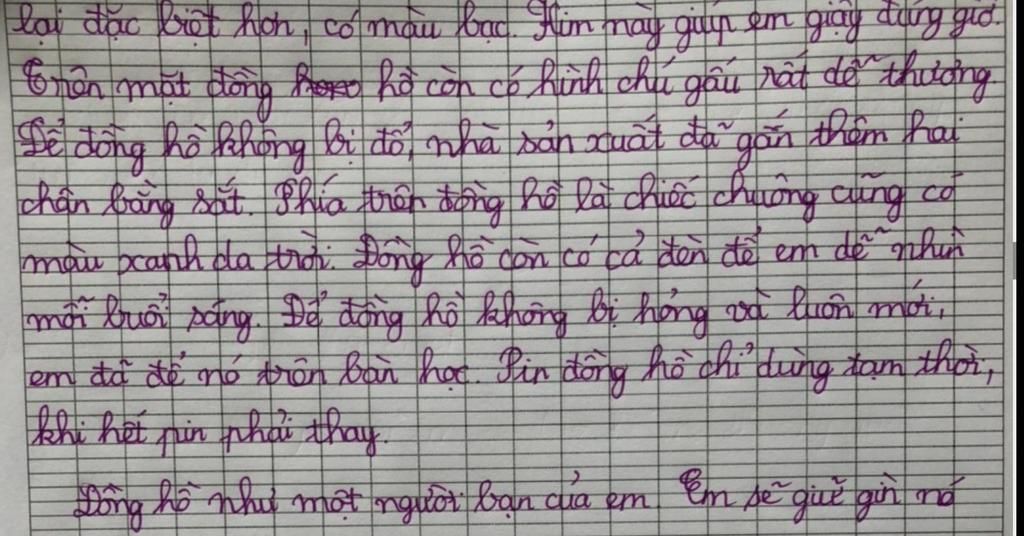 lại đặc biệt hơn, có màu bạc. Kim này giúp em giậy đúng giờ.
Trên mặt đồng hồ còn có hình chú gấu rất dễ thương.
Để đồng hồ không bị đổ, nhà sản xuất đã gắn thêm hai
chân bằng sắt. Phía trên đồng hồ là chiếc chuông cũng có
màu xanh da trời. Đồng hồ còn có cả đèn để em dễ nhìn
mỗi buổi sáng. Để đồng hồ không bị hỏng và luôn mới,
em đã để nó trên bàn học. Pin đồng hồ chỉ dùng tạm thời,
khi hết pin phải thay.
Đồng hồ như một người bạn của em. Em sẽ giữ gìn nó